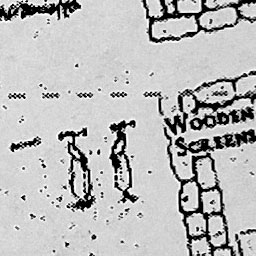 WOODEN
SCREENS